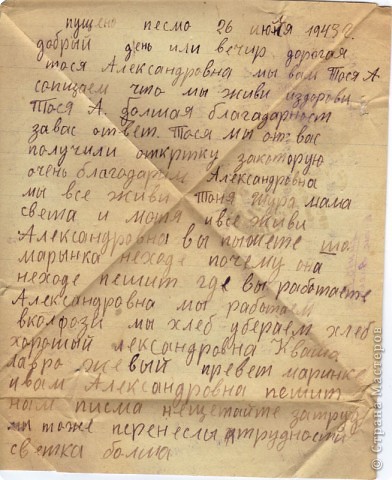 пущено песмо 26 июня 1943 г.
добрый день или вечир дорогая
тося Александровна мы вам Тося А
сопизаем что мы живи издорови
Тося А. болшая благадарност
завас ответ. Тося мы от вас
получили откртку закоторую
очень благодарим Александровна
мы все живи Тоня Шура мама
света и моня ивсе живи
Александровна вы пыжете што
марынка неходе почему она
неходе пешит где вы работаете
Александровна мы работаем
вколфози мы хлеб убераем хлеб
хорошый лександровна Кваша
лавро жевый превет маринке
ивам Александровна пешит
ным писма нещетайте затруд
мы тоже перенеслы трудности
светка болша
© Страна Мастеров